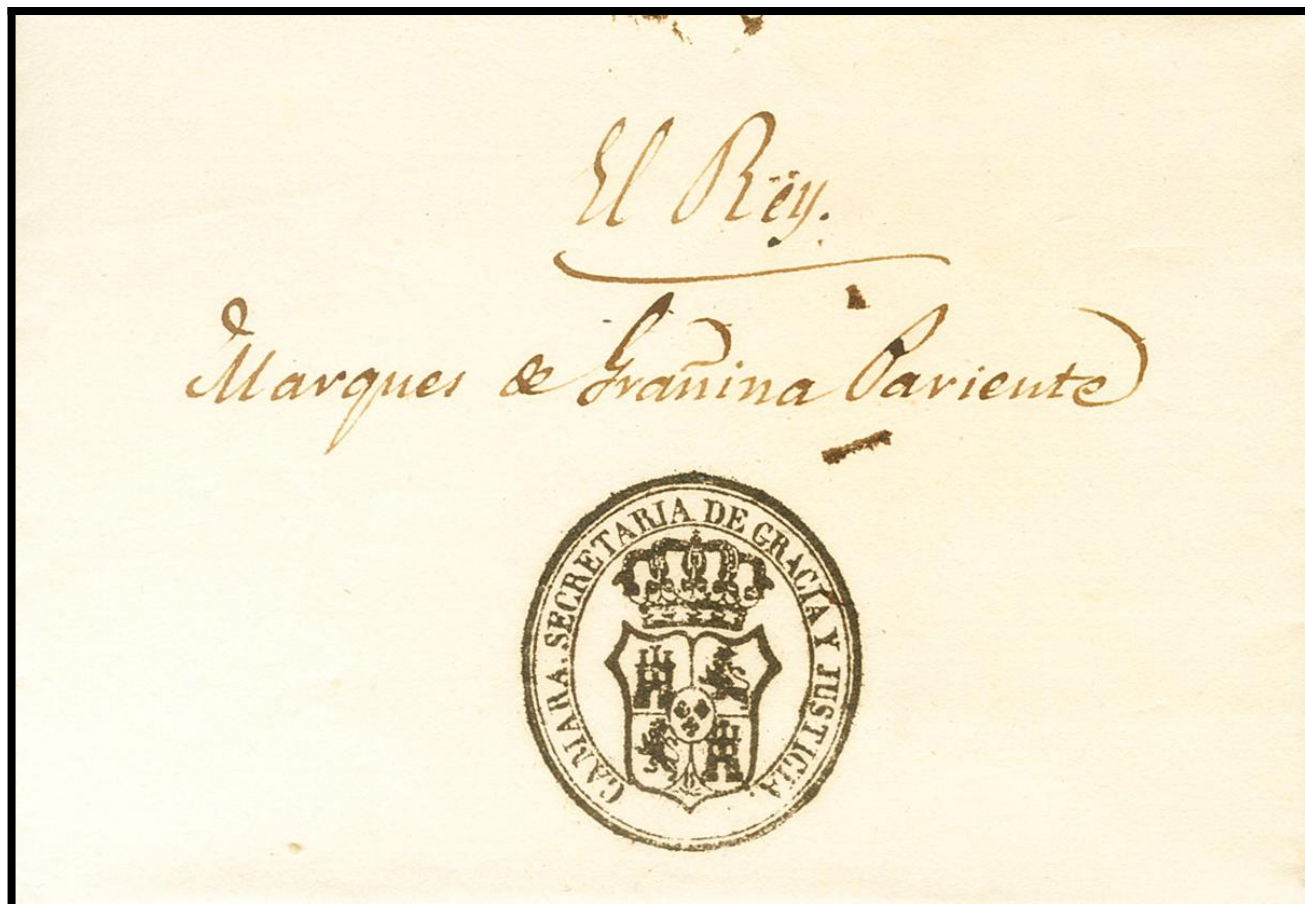 El Rey.
Marques de Grañina Pariente
CAMARA. SECRETARIA DE GRACIA Y JUSTICIA.